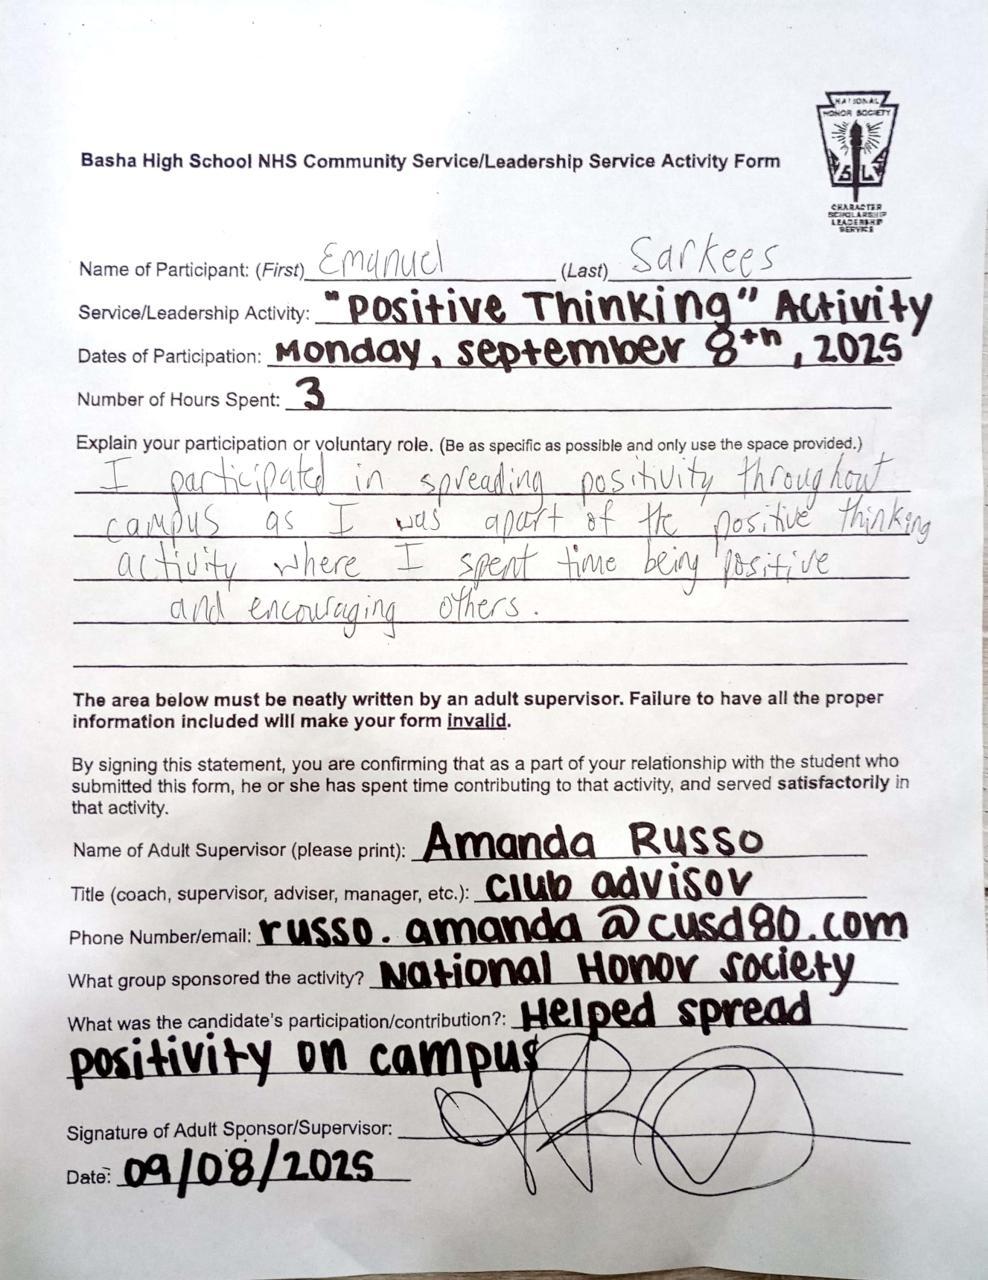 NATIONAL
HONOR SOCIETY
S L
CHARACTER
SCHOLARSHIP
LEADERSHIP
SERVICE
Basha High School NHS Community Service/Leadership Service Activity Form
Name of Participant: (First) Emanuel (Last) Sarkees
Service/Leadership Activity: "Positive Thinking" Activity
Dates of Participation: Monday, september 8th, 2025
Number of Hours Spent: 3
Explain your participation or voluntary role. (Be as specific as possible and only use the space provided.)
I participated in spreading positivity throughout
campus as I was apart of the positive thinking
activity where I spent time being positive
and encouraging others.
The area below must be neatly written by an adult supervisor. Failure to have all the proper
information included will make your form invalid.
By signing this statement, you are confirming that as a part of your relationship with the student who
submitted this form, he or she has spent time contributing to that activity, and served satisfactorily in
that activity.
Name of Adult Supervisor (please print): Amanda Russo
Title (coach, supervisor, adviser, manager, etc.): club advisor
Phone Number/email: russo.amanda@cusd80.com
What group sponsored the activity? National Honor society
What was the candidate's participation/contribution?: Helped spread
positivity on campus
Signature of Adult Sponsor/Supervisor:
Date: 09/08/2025